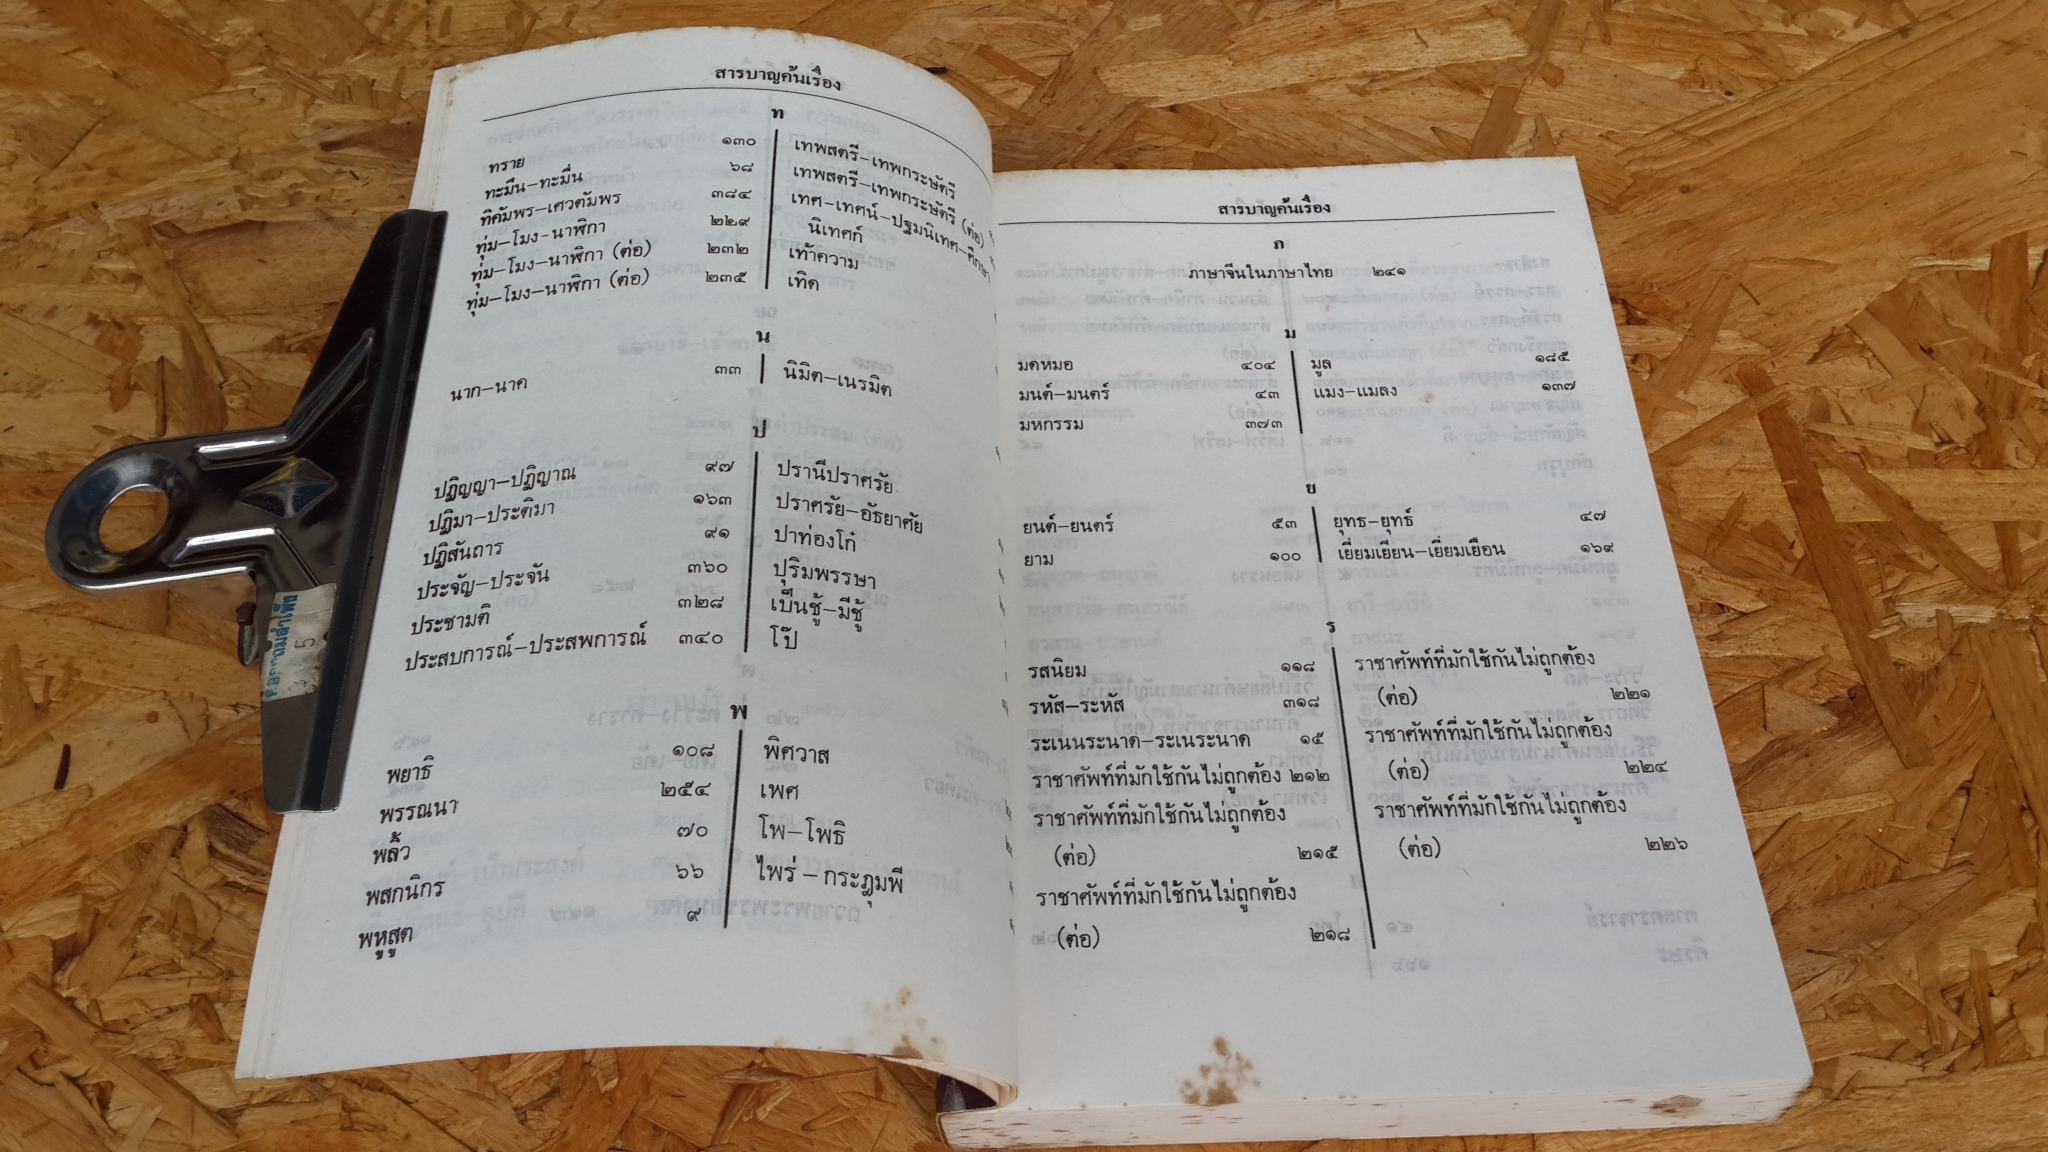 สารบาญค้นเรื่อง
ท
ทราย ๑๓๐
ทะมึน-ทะมื่น ๖๘
ทิคัมพร-เศวตัมพร ๓๘๔
ทุ่ม-โมง-นาฬิกา ๒๒๙
ทุ่ม-โมง-นาฬิกา (ต่อ) ๒๓๒
ทุ่ม-โมง-นาฬิกา (ต่อ) ๒๓๕
เทพสตรี-เทพกระษัตรี
เทพสตรี-เทพกระษัตรี (ต่อ)
เทศ-เทศน์-ปฐมนิเทศ-ศึกษา
นิเทศก์
เท้าความ
เทิด
น
นาก-นาค ๓๓
นิมิต-เนรมิต
ป
ปฏิญญา-ปฏิญาณ ๙๗
ปฏิมา-ประติมา ๑๖๓
ปฏิสันถาร ๙๑
ประจัญ-ประจัน ๓๖๐
ประชามติ ๓๒๘
ประสบการณ์-ประสพการณ์ ๓๔๐
ปรานีปราศรัย
ปราศรัย-อัธยาศัย
ปาท่องโก๋
ปุริมพรรษา
เป็นชู้-มีชู้
โป๊
พ
พยาธิ ๑๐๘
พรรณนา ๒๕๔
พลิ้ว ๗๐
พสกนิกร ๖๖
พหูสูต ๙
พิศวาส
เพศ
โพ-โพธิ
ไพร่-กระฎุมพี
สารบาญค้นเรื่อง
ภ
ภาษาจีนในภาษาไทย ๒๔๑
ม
มดหมอ ๔๐๔
มนต์-มนตร์ ๔๓
มหกรรม ๓๗๓
มูล ๑๘๕
แมง-แมลง ๑๓๗
ย
ยนต์-ยนตร์ ๕๓
ยาม ๑๐๐
ยุทธ-ยุทธ์ ๔๗
เยี่ยมเยียน-เยี่ยมเยือน ๑๖๙
ร
รสนิยม ๑๑๘
รหัส-ระหัส ๓๑๘
ระเนนระนาด-ระเนระนาด ๑๕
ราชาศัพท์ที่มักใช้กันไม่ถูกต้อง ๒๑๒
ราชาศัพท์ที่มักใช้กันไม่ถูกต้อง
(ต่อ) ๒๑๕
ราชาศัพท์ที่มักใช้กันไม่ถูกต้อง
(ต่อ) ๒๑๘
ราชาศัพท์ที่มักใช้กันไม่ถูกต้อง
(ต่อ) ๒๒๑
ราชาศัพท์ที่มักใช้กันไม่ถูกต้อง
(ต่อ) ๒๒๔
ราชาศัพท์ที่มักใช้กันไม่ถูกต้อง
(ต่อ) ๒๒๖
5